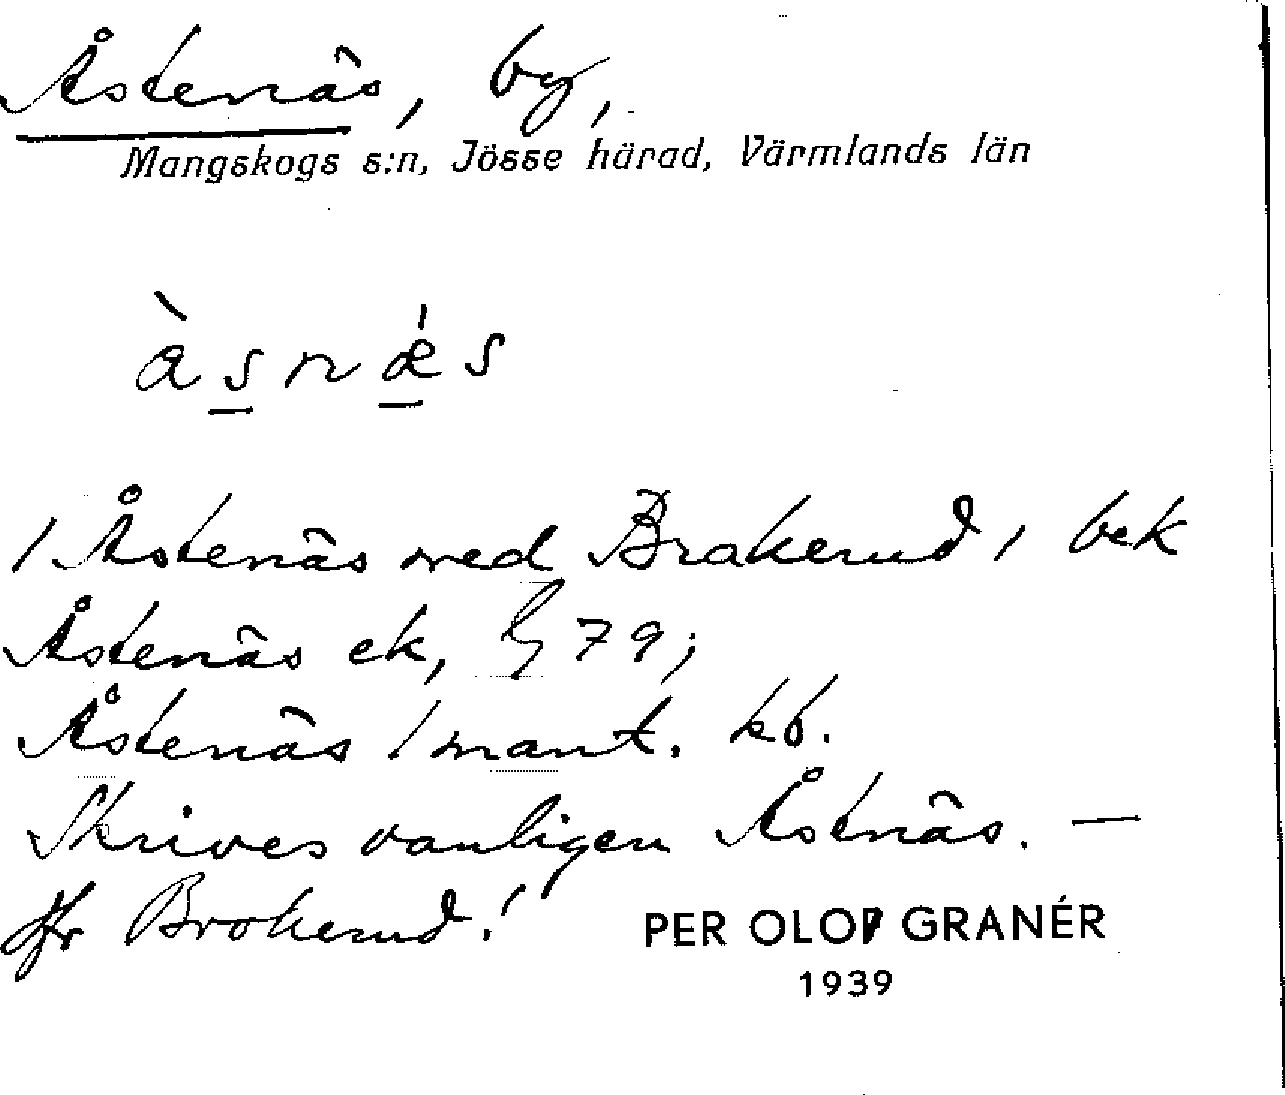 Åstenäs, by,
Mangskogs s:n, Jösse härad, Värmlands län
àsnǽs
/ Åstenäs med Brakerud / bek
Åstenäs ek, 79;
Åstenäs 1 mant. kb.
Skrives vanligen Åstnäs. —
Jfr Brokerud!
PER OLOF GRANÉR
1939